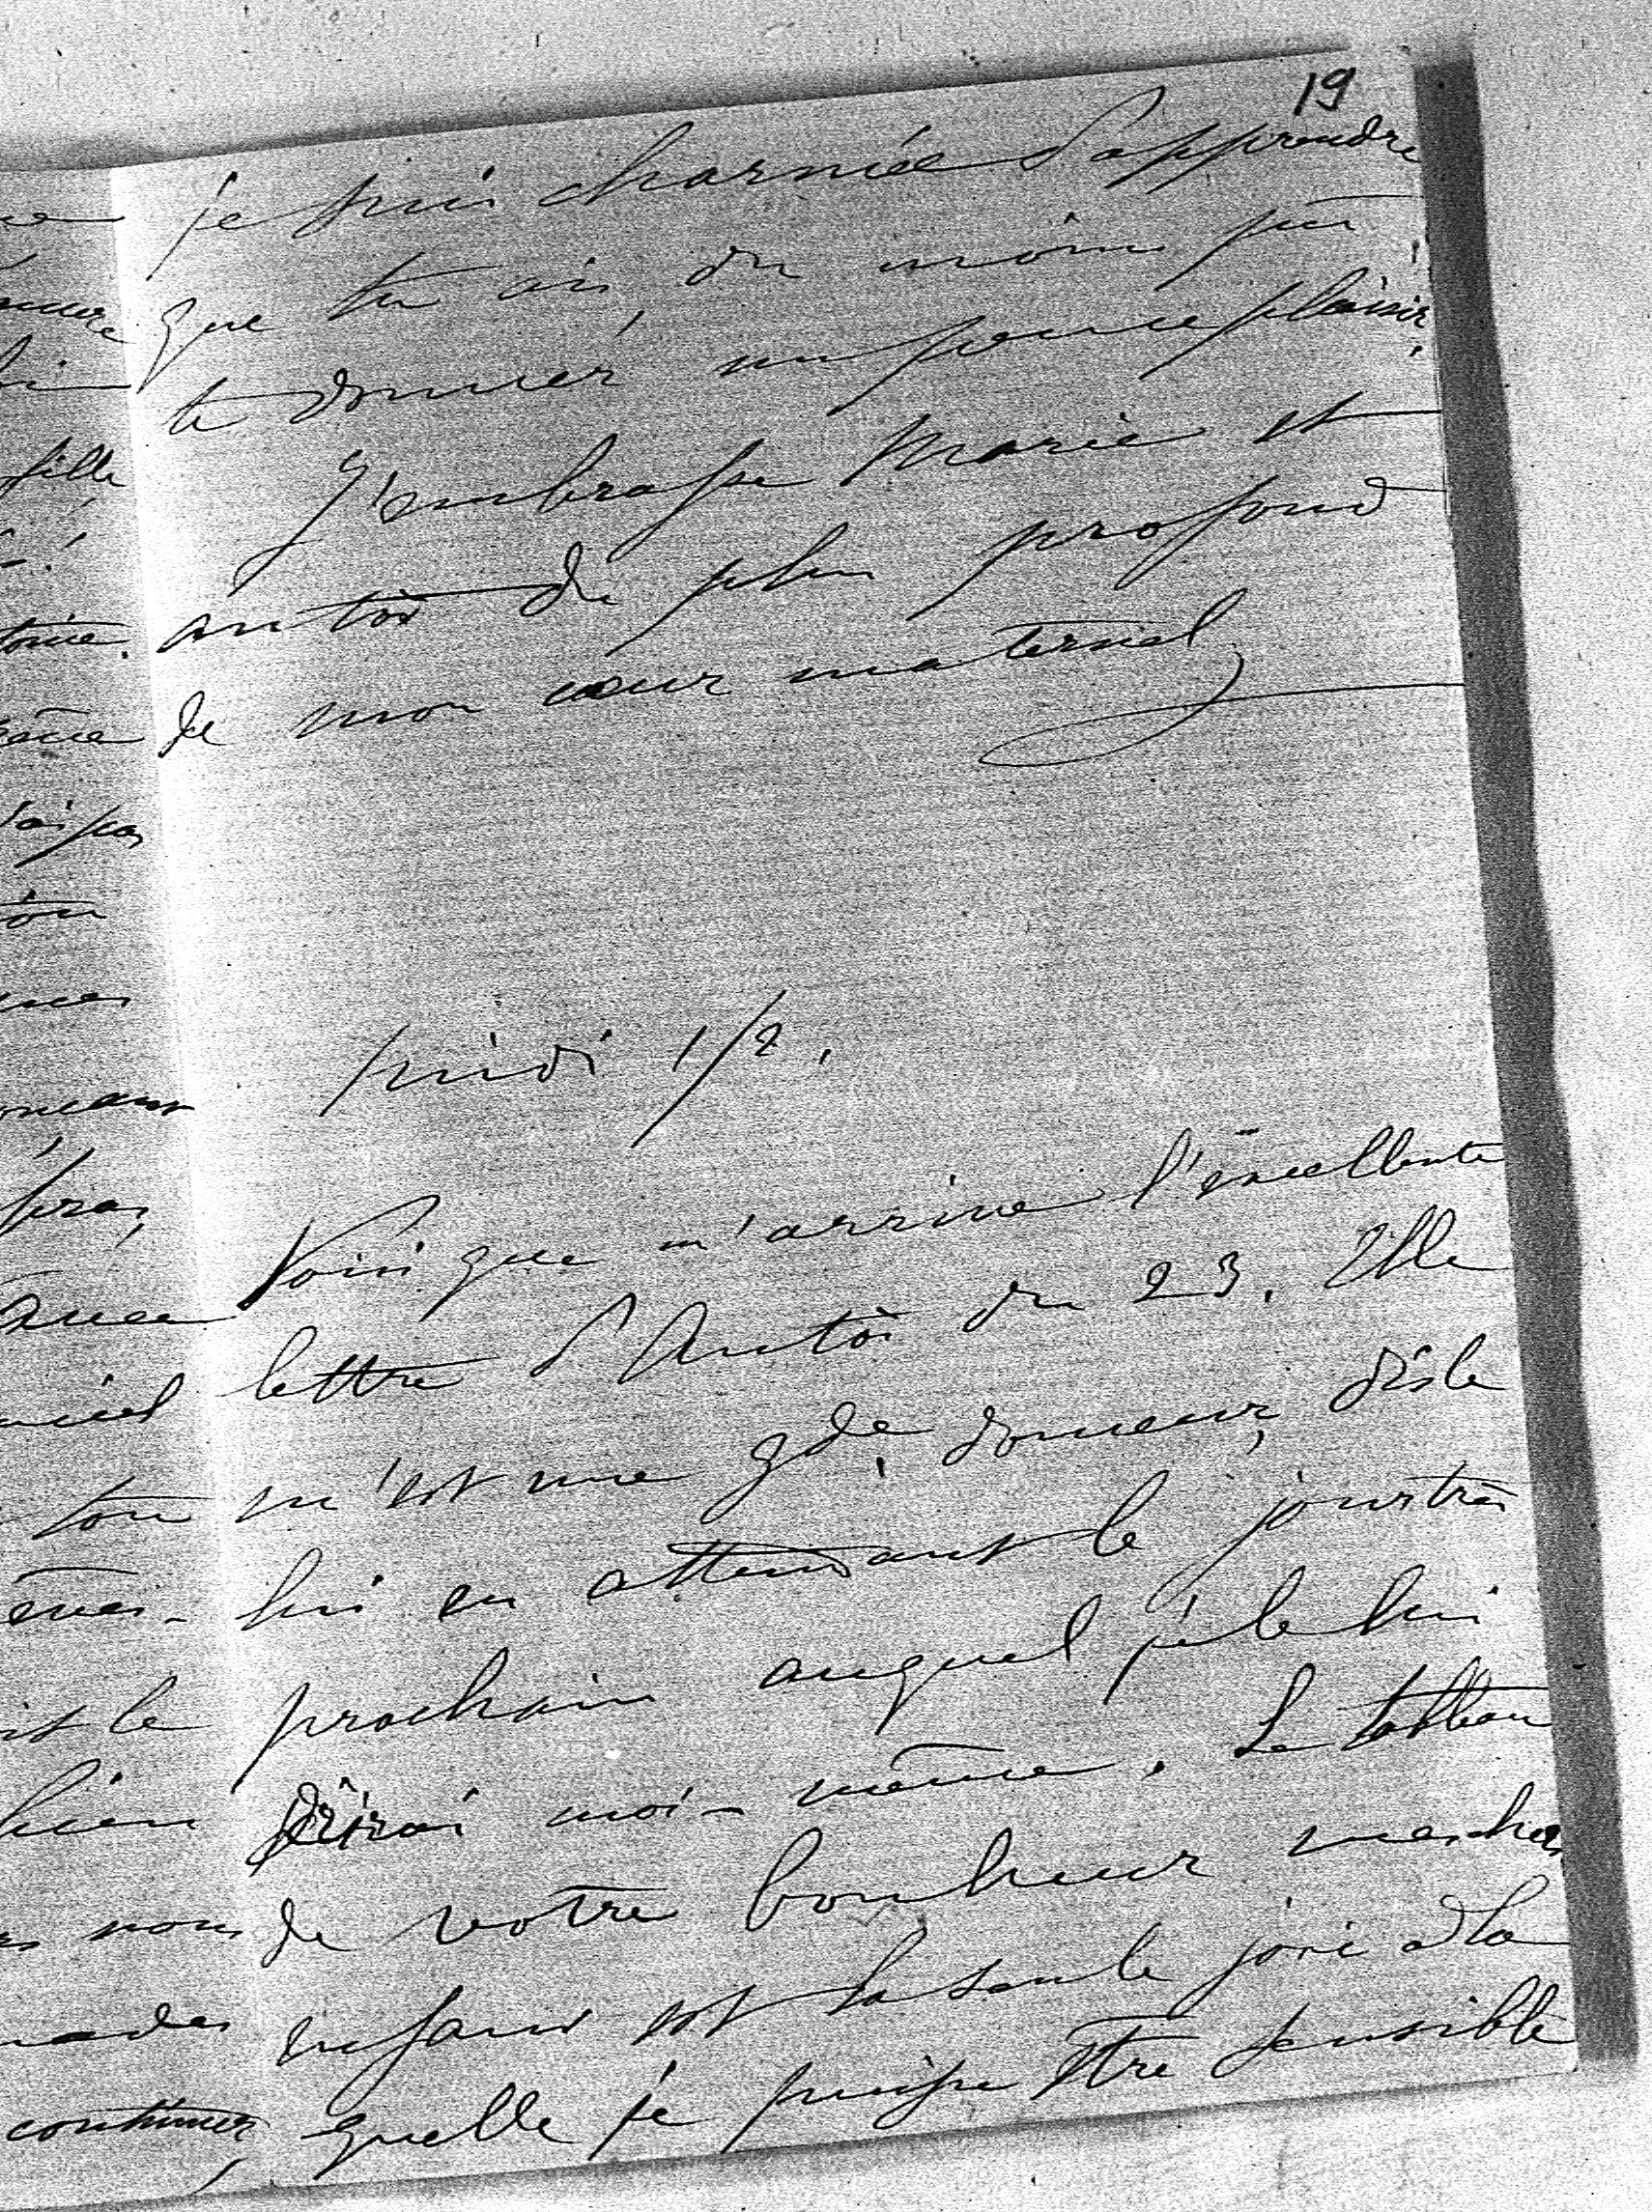 19
je suis charmée d'apprendre
que tu ais du moins pu
te donner un peu ce plaisir.
J'embrasse Marie et
antoi du plus profond
de mon cœur maternel
midi 1/2.
Voici que m'arrive l'excellente
lettre d'Antoi du 23. Elle
m'est une gde douceur, dis le
lui en attendant le jour très
prochain auquel je le lui
dirai moi-même. Le tableau
de votre bonheur mes chers
enfans est la seule joie à la
quelle je puisse être sensible
fille
ton
it le
bien
nous
continuer,